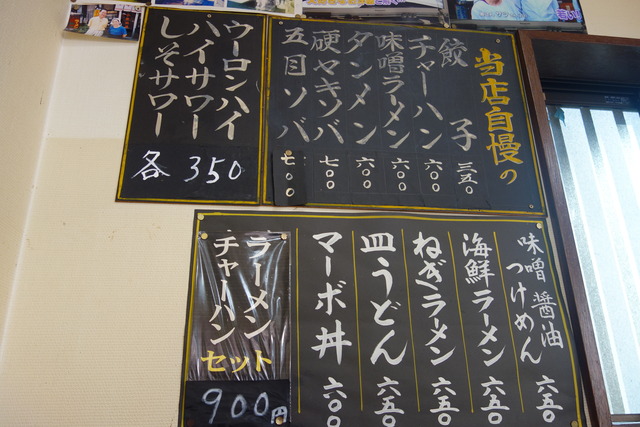 当店自慢の
餃子 三五〇
チャーハン 六〇〇
味噌ラーメン 六〇〇
タンメン 六〇〇
硬ヤキソバ 七〇〇
五目ソバ 七〇〇
ウーロンハイ
ハイサワー
しそサワー
各350
味噌 醤油
つけめん 六五〇
海鮮ラーメン 六五〇
ねぎラーメン 六五〇
皿うどん 六五〇
マーボ丼 六〇〇
ラーメン
チャーハン
セット
900円